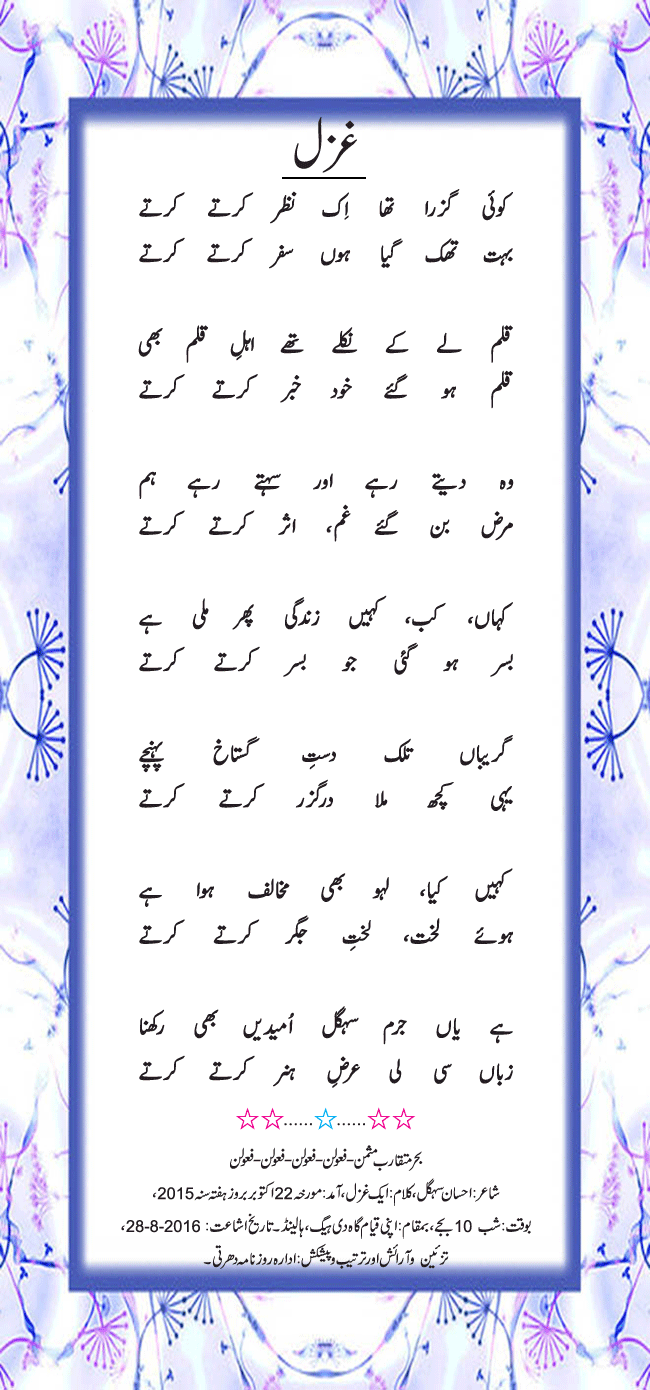 غزل
کوئی گزرا تھا اِک نظر کرتے کرتے
بہت تھک گیا ہوں سفر کرتے کرتے
قلم لے کے نکلے تھے اہلِ قلم بھی
قلم ہو گئے خود خبر کرتے کرتے
وہ دیتے رہے اور سہتے رہے ہم
مرض بن گئے غم، اثر کرتے کرتے
کہاں، کب، کہیں زندگی پھر ملی ہے
بسر ہو گئی جو بسر کرتے کرتے
گریباں تلک دستِ گستاخ پہنچے
یہی کچھ ملا درگزر کرتے کرتے
کہیں کیا، لہو بھی مخالف ہوا ہے
ہوئے لخت، لختِ جگر کرتے کرتے
ہے یاں جرم سہگل اُمیدیں بھی رکھنا
زباں سی لی عرضِ ہنر کرتے کرتے
☆☆......☆......☆☆
بحر متقارب مثمن-فعولن-فعولن-فعولن-فعولن
شاعر: احسان سہگل، کلام: ایک غزل، آمد: مورخہ 22 اکتوبر بروز ہفتہ سنہ 2015،
بوقت: شب 10 بجے، بمقام: اپنی قیام گاہ دی ہیگ، ہالینڈ۔ تاریخ اشاعت: 2016-8-28،
تزئین و آرائش اور ترتیب و پیشکش: ادارہ روزنامہ دھرتی۔